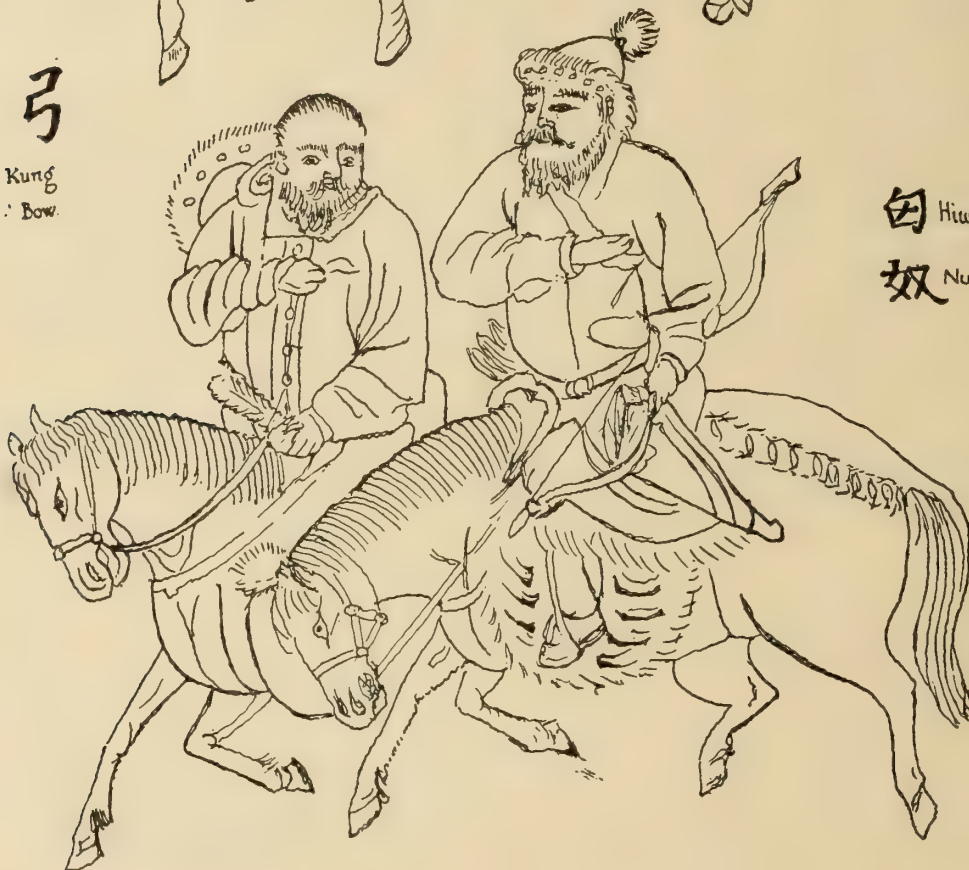 弓
Kung
∴ Bow.
匈 Hiu
奴 Nu